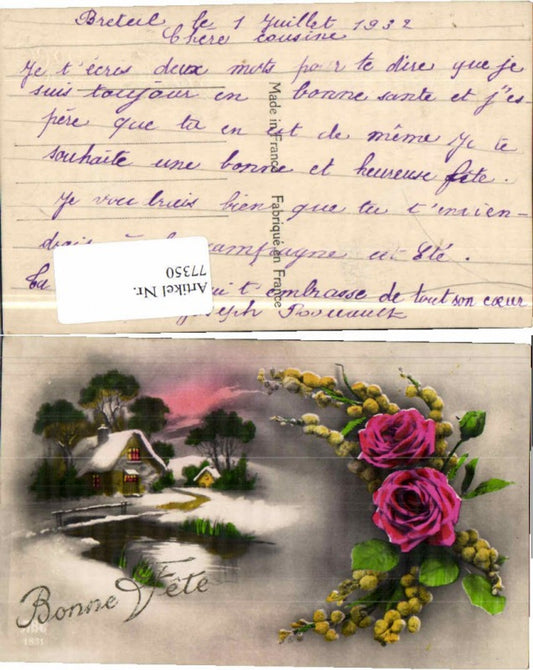 Breteil, le 1 Juillet 1932
Chère cousine
Je t'écres deux mots pour te dire que je
suis toujour en bonne sante et j'es-
père que ta en est de même Je te
souhaite une bonne et heureuse fête.
Je voudriais bien que tu t'envien-
drais à la campagne cet été.
Ta qui t'embrasse de tout son cœur
Joseph
Made in France Fabriqué en France
Artikel Nr.
77350
Bonne Fête
1831